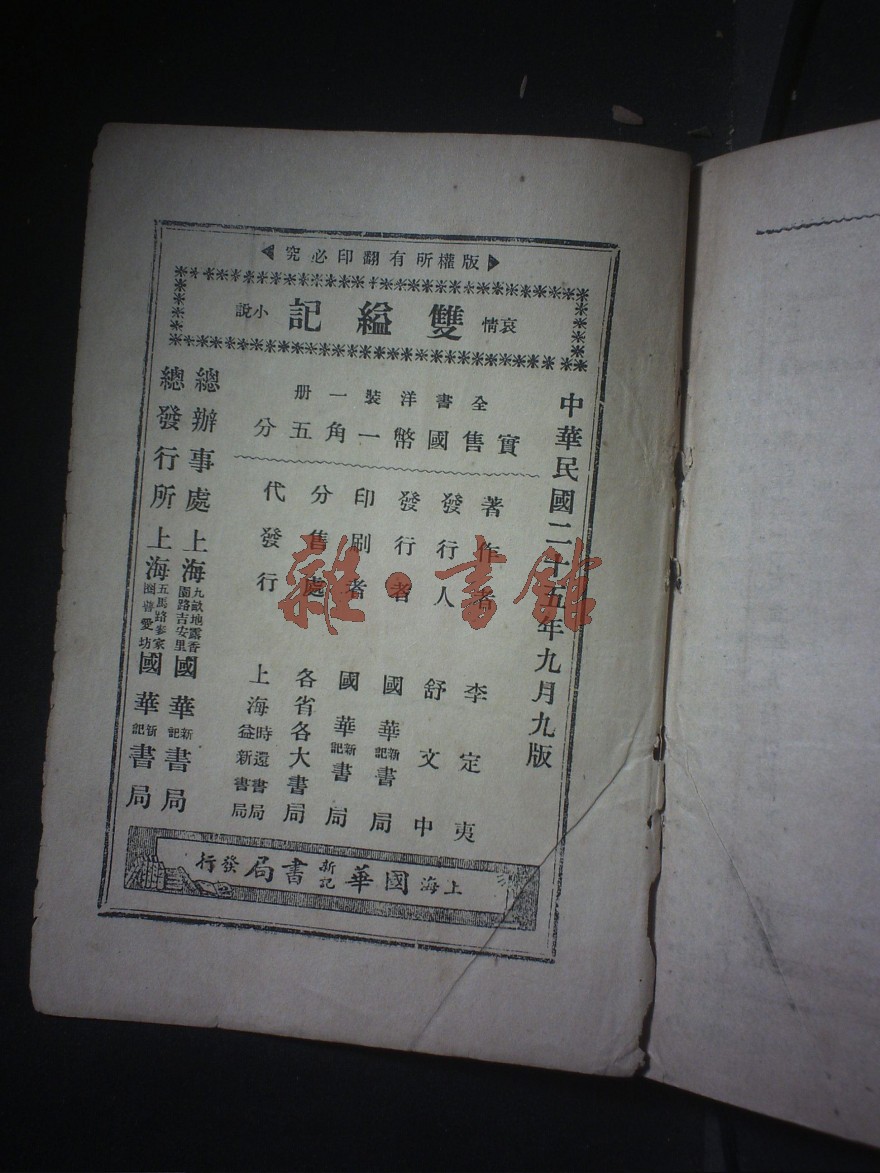 版權所有翻印必究
哀情雙縊記小說
中華民國二十五年九月九版
全書洋裝一册
實售國幣一角五分
著作者 李定夷
發行人 舒文中
發行者 國華新記書局
印刷者 國華新記書局
分售處 各省各大書局
代發行 上海時還書局 益新書局
總辦事處 上海九畝地露香園路吉安里 國華新記書局
總發行所 上海五馬路麥家圈普愛坊 國華新記書局
上海國華新記書局發行
雜·書館